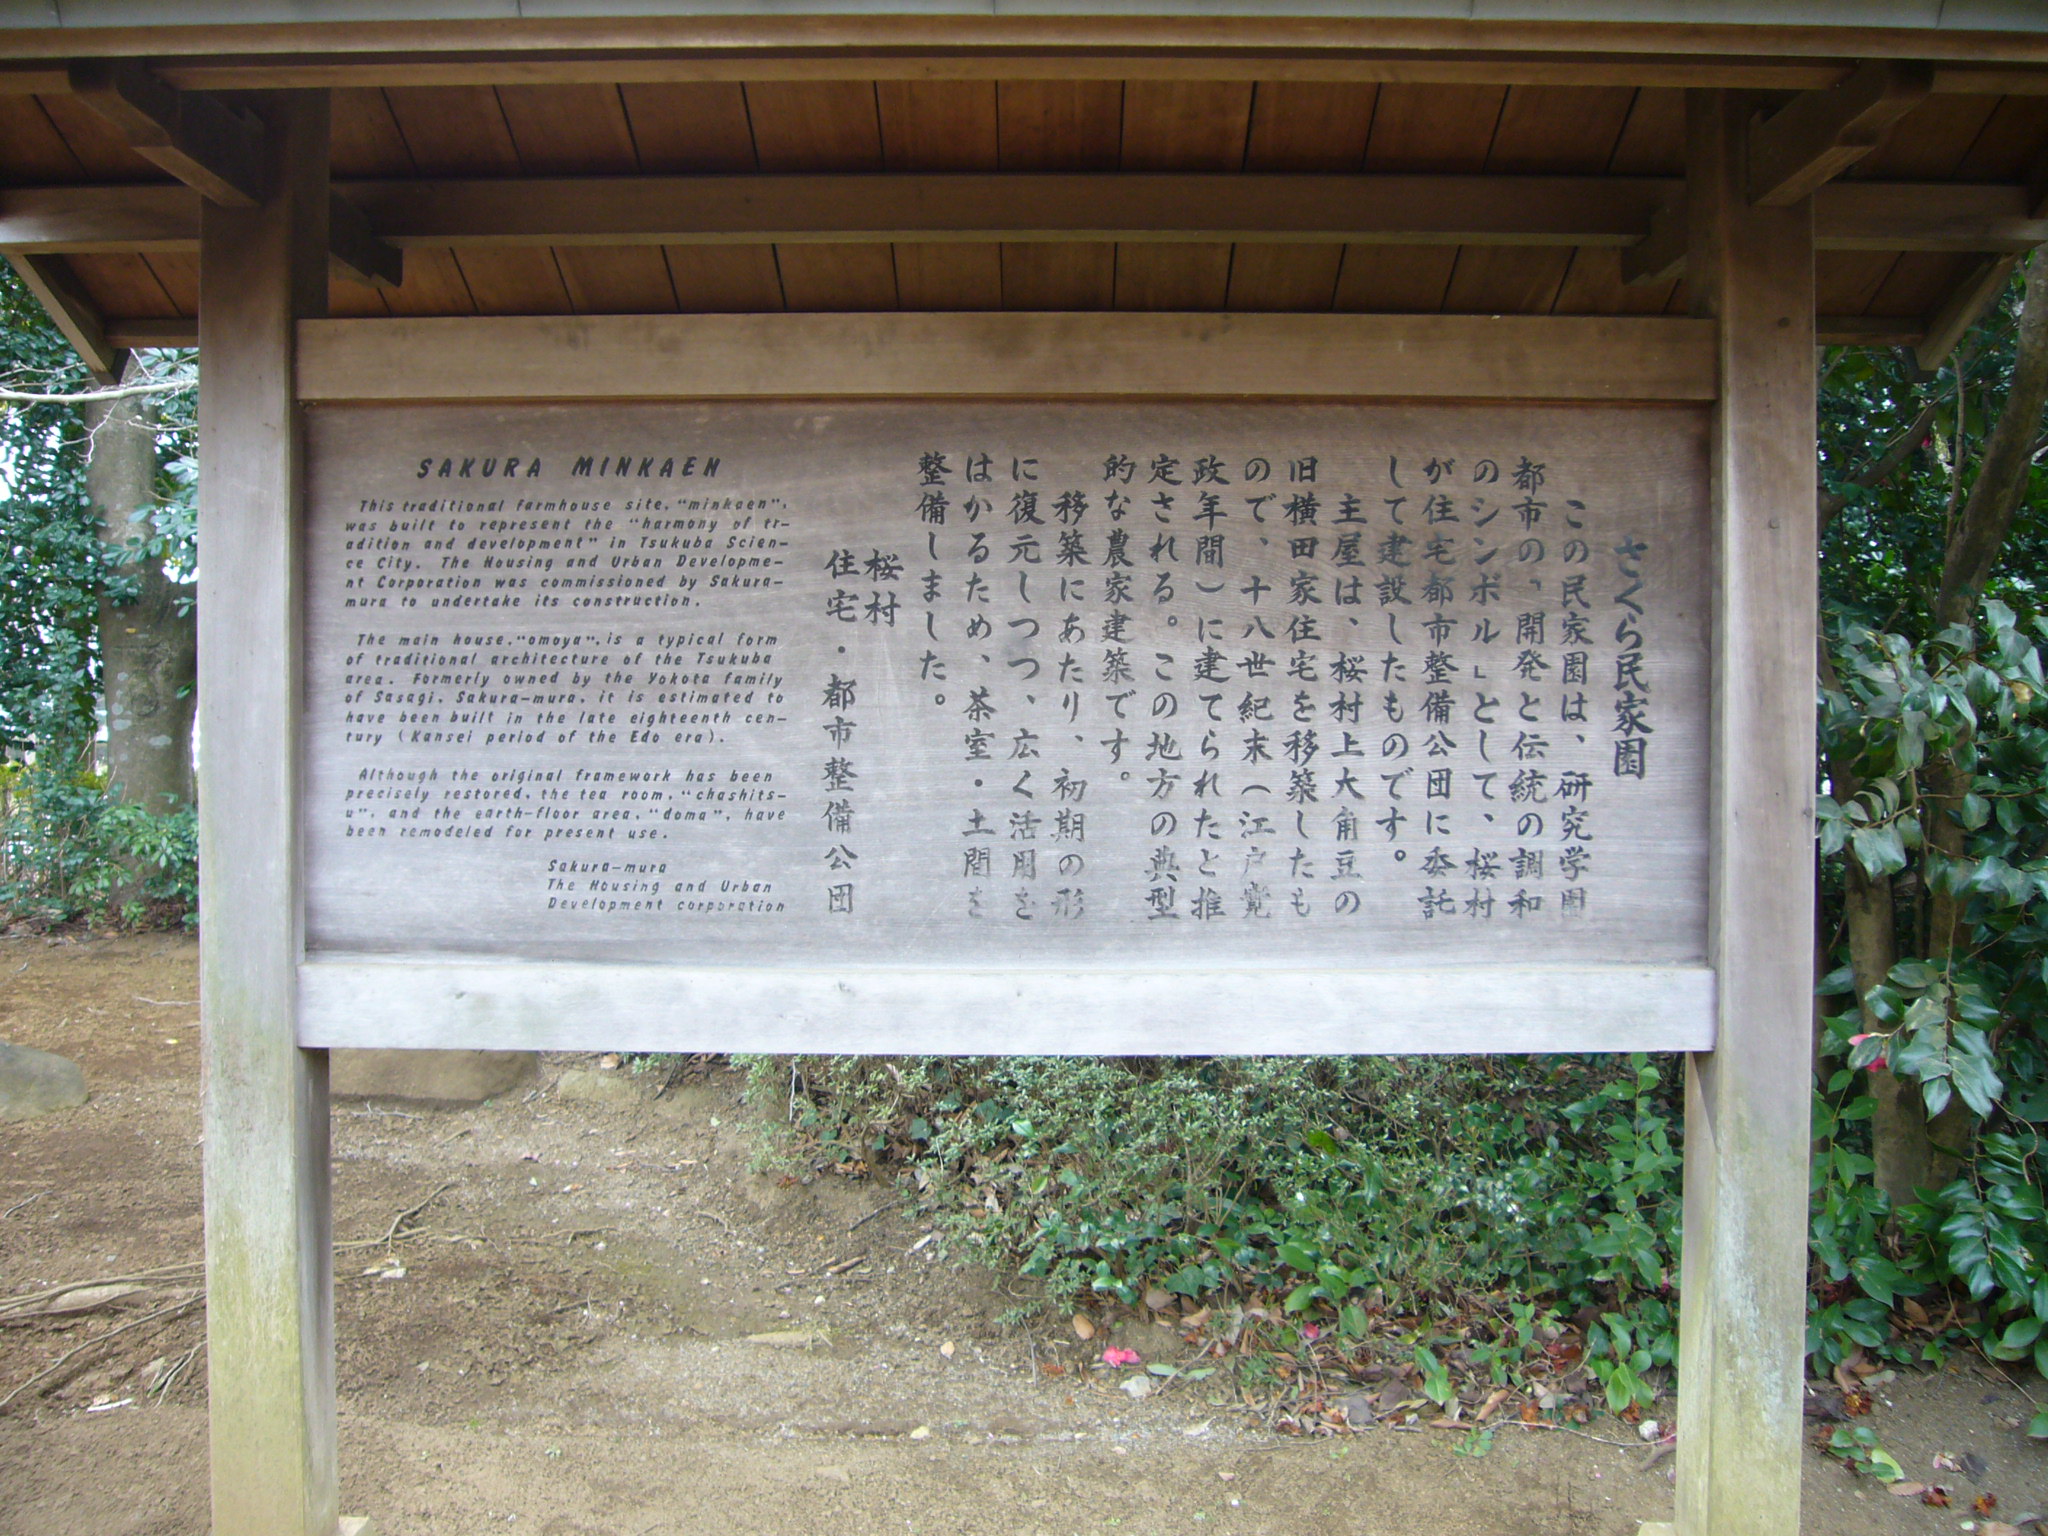 SAKURA MINKAEN
This traditional farmhouse site, "minkaen",
was built to represent the "harmony of tr-
adition and development" in Tsukuba Scien-
ce City. The Housing and Urban Developme-
nt Corporation was commissioned by Sakura-
mura to undertake its construction.
The main house, "omoya", is a typical form
of traditional architecture of the Tsukuba
area. Formerly owned by the Yokota family
of Sasagi, Sakura-mura, it is estimated to
have been built in the late eighteenth cen-
tury (Kansei period of the Edo era).
Although the original framework has been
precisely restored, the tea room, "chashits-
u", and the earth-floor area, "doma", have
been remodeled for present use.
Sakura-mura
The Housing and Urban
Development corporation
さくら民家園
この民家園は、研究学園
都市の「開発と伝統の調和
のシンボル」として、桜村
が住宅都市整備公団に委託
して建設したものです。
主屋は、桜村上大角豆の
旧横田家住宅を移築したも
ので、十八世紀末(江戸寛
政年間)に建てられたと推
定される。この地方の典型
的な農家建築です。
移築にあたり、初期の形
に復元しつつ、広く活用を
はかるため、茶室・土間を
整備しました。
桜村
住宅・都市整備公団